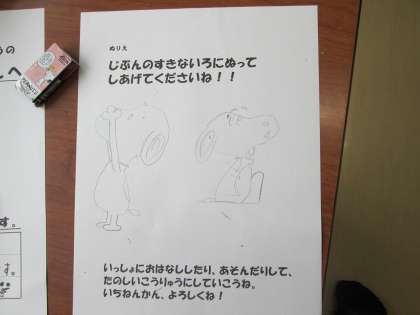 ぬりえ
じぶんのすきないろにぬって
しあげてくださいね！！
いっしょにおはなししたり、あそんだりして、
たのしいこうりゅうにしていこうね。
いちねんかん、よろしくね！
の
へ
す。
す。